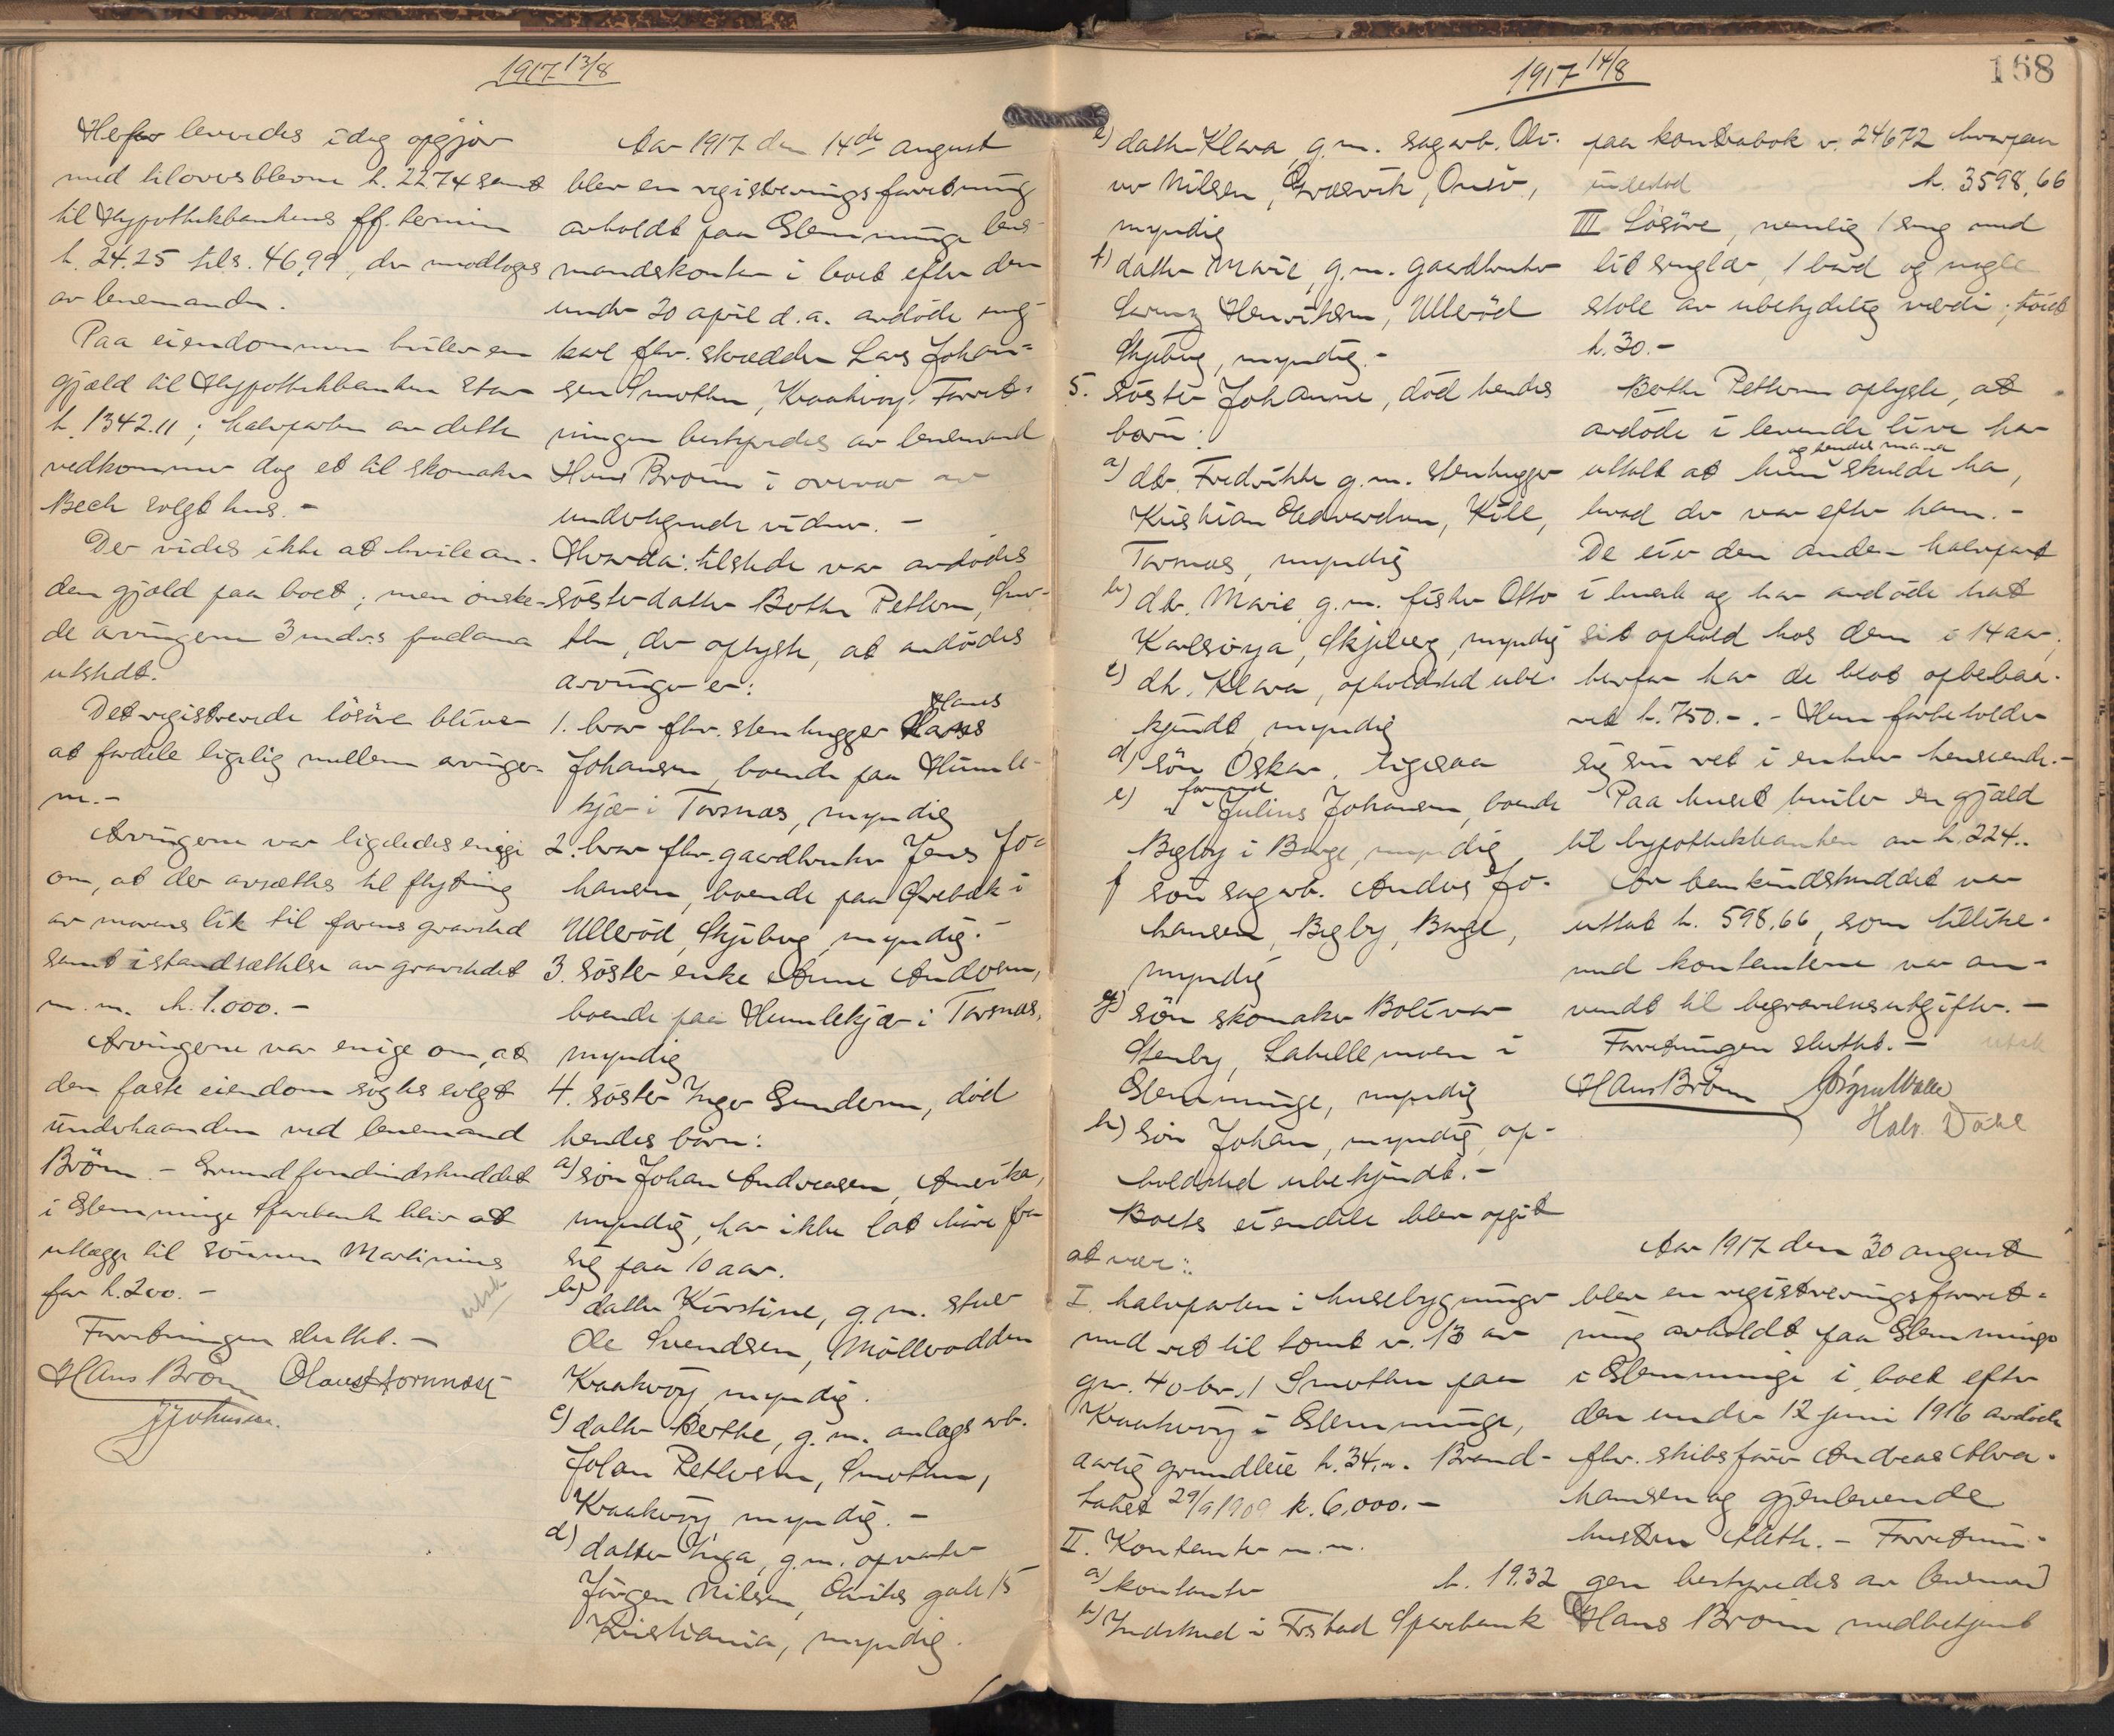 1917 13/8
Herfor leveredes idag opgjør
med tiloversblevne k. 22.74 samt
til Hypothekbankens ff. termin
k. 24.25 tils. 46,99, der modtoges
av lensmanden.
Paa eiendommen hviler en
gjæld til Hypothekbanken stor
k. 1342.11; halvparten av dette
vedkommer dog et til skomaker
Bech solgt hus. -
Der vides ikke at hvile an-
den gjæld paa boet; men ønske-
de arvingerne 3 mdrs proclama
utstedt.
Det registrerede løsøre bliver
at fordele ligelig mellem arvinger-
ne. -
Arvingerne var ligeledes enige
om, at der avsættes til flytning
av morens lik til farens gravsted
samt istandsættelse av gravstedet
m. m. k. 1.000. -
Arvingerne var enige om, at
den faste eiendom søgtes solgt
underhaanden ved lensmand
Brøm. - Grundfondindskuddet
i Glemminge Sparebank blir at
utlægge til sønnen Martinius
for k. 200. -
utsk
Forretningen sluttet. -
Hans Brøm Olaus Tornnæss
J Johansen.
Aar 1917 den 14de august
blev en registreringsforretning
avholdt paa Glemminge lens-
mandskontor i boet efter den
under 20 april d.a. avdøde ung-
karl fhv. skrædder Lars Johan-
sen Smotten, Kraakerøy. Forret-
ningen bestyredes av lensmand
Hans Brøm i overvær av
undertegnede vidner. -
Hvorda: tilstede var avdødes
søsterdatter Berthe Pettersen, Smo-
tten, der oplyste, at avdødes
arvinger er:
1. bror fhv. stenhugger Hans
Johansen, boende paa Humle-
kjær i Torsnæs, myndig
2. bror fhv. gaardbruker Jens Jo-
hansen, boende paa Grebæk i
Ullerød, Skjeberg, myndig. -
3. søster enke Anne Andersen,
boende paa Humlekjær i Torsnæs,
myndig
4. søster Inger Gundersen, død
hendes børn:
a) søn Johan Andreasen, Amerika,
myndig, har ikke latt høre fra
sig paa 10 aar.
b) datter Kirstine, g.m. stuer
Ole Svendsen, Møllerodden
Kraakerøy, myndig.
c) datter Berthe, g.m. anlægsarb.
Johan Pettersen, Smotten,
Kraakerøy myndig. -
d) datter Inga, g.m. opvarter
Jørgen Nilsen, gate 15
Kristiania, myndig.
1917 14/8
168
e) datter Klara, g.m. sagarb. Oli-
ver Nilsen, Græsvik, Onsø,
myndig
f) datter Marie, g.m. gaardbruker
Lorenz Henriksen, Ullerød
Skjeberg, myndig. -
5. søster Johanne, død hendes
børn:
a) dtr. Fredrikke g.m. stenhugger
Kristian Edvardsen, Kiil,
Torsnæs, myndig
b) dtr. Marie g.m. fisker Otto
Karlsøya, Skjeberg, myndig
c) dtr. Klara, opholdsted ube-
kjendt myndig
d) søn Oskar, ligesaa
e) " formand Julius Johansen, boende
Begby i Borge, myndig
f søn sagarb. Anders Jo-
hansen, Begby, Borge,
myndig
g) søn skomaker Bolivar
Stenby, Labellemoen i
Glemminge, myndig
h) søn Johan, myndig, op-
holdsted ubekjendt. -
Boets eiendele blev opgit
at være:
I. halvparten i husebygninger
med ret til tomt nr. 13 av
gnr. 40 bnr. 1 Smotten paa
Kraakerøy i Glemminge,
aarlig grundleie k. 34.-. Brand-
takst 29/9 1909 k. 6.000. -
II. Kontanter m.m.
a) kontanter k. 19.32
b) Indskud i Fr.stad Sparebank
paa kontrabok nr. 24672 hvorpaa
indestod k. 3598,66
III Løsøre, nemlig 1 seng med
litt sengklær, 1 bord og nogle
stole av ubetydelig værdi; takst
k. 30. -
Berthe Pettersen oplyste, at
avdøde i levende live har
uttalt at hun og hendes mand skulde ha,
hvad der var efter ham. -
De eier den anden halvpart
i huset og har avdøde hat
sit ophold hos dem i 14 aar;
herfor har de blot oppebaa-
ret k. 750.-. - Hun forbeholder
sig sin ret i enhver henseende. -
Paa huset hviler en gjæld
til hypothekbanken av k. 224..
Av bankindskuddet var
uttat k. 598.66, som tillike-
med kontanterne var an-
vendt til begravelsesutgifter. -
Forretningen sluttet. - utsk
Hans Brøm
Halv. Dahl
Aar 1917 den 30 august
blev en registreringsforret-
ning avholdt paa Glemminge
i Glemminge i boet efter
den under 12 juni 1916 avdøde
fhv. skibsfører Andreas Abra-
hamsen og gjenlevende
hustru Math. - Forretnin-
gen bestyredes av lensmand
Hans Brøm medbetjent